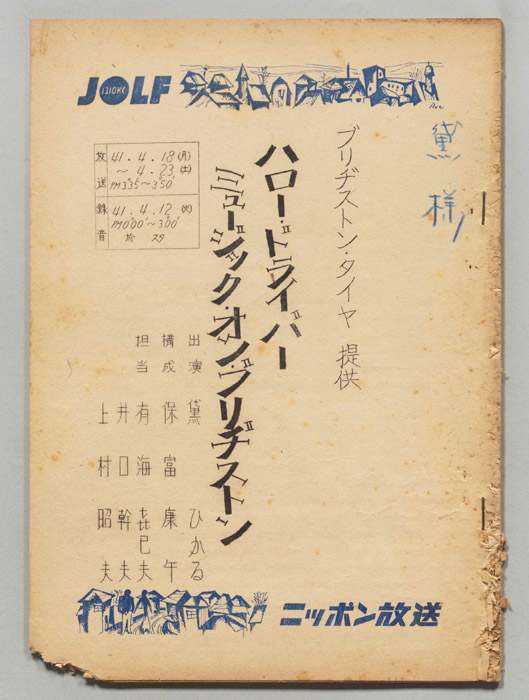 JOLF
1310KC
黛様
ブリヂストン・タイヤ 提供
ハロー・ドライバー
ミュージック・オン・ブリヂストン
放送 41. 4. 18(月)
～ 4. 23(土)
PM3:35～3:50
録音 41. 4. 12(火)
出演 黛 ひかる
構成 保富 康午
担当 有海 喜巳夫
井口 幹夫
上村 昭夫
ニッポン放送